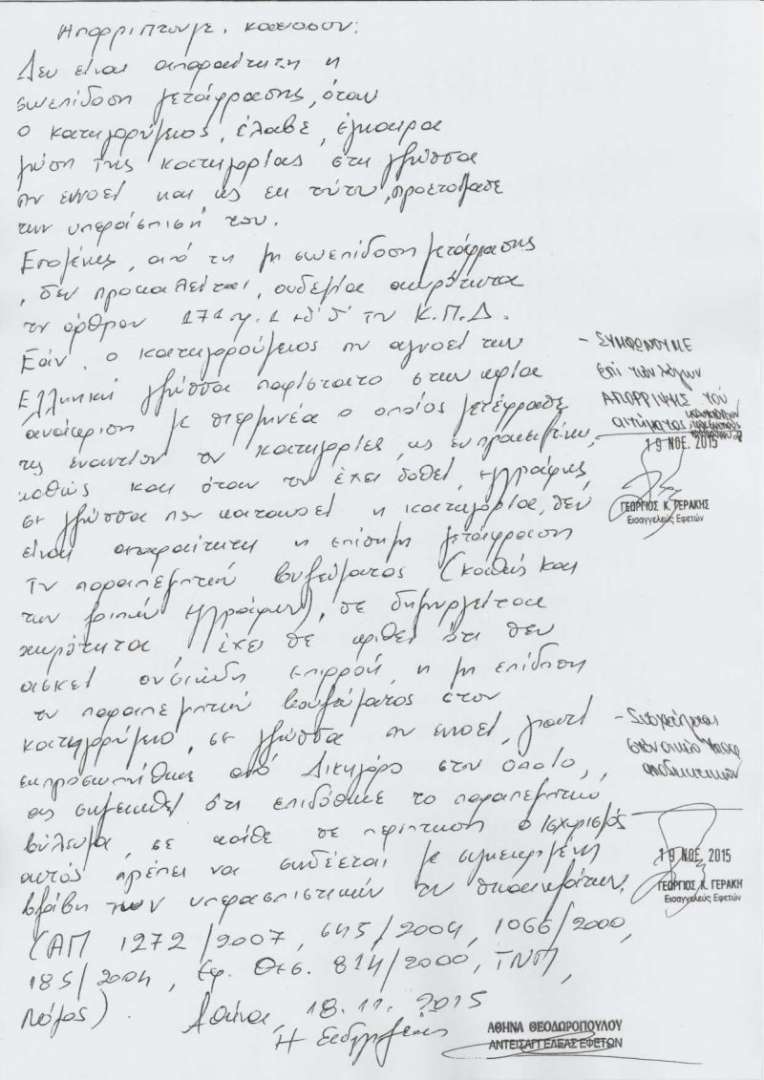 Απορρίπτουμε, καθόσον:
Δεν είναι απαραίτητη η
συνεπίδοση μετάφρασης, όταν
ο κατηγορούμενος, έλαβε, έγκαιρα
γνώση της κατηγορίας στη γλώσσα
που εννοεί και ως εκ τούτου, προετοίμασε
την υπεράσπισή του.
Επομένως, από τη μη συνεπίδοση μετάφρασης
, δεν προκαλείται, ουδεμία ακυρότητα
του άρθρου 171 παρ. 1 εδ. δ' του Κ.Π.Δ.
Εάν, ο κατηγορούμενος που αγνοεί την
Ελληνική γλώσσα παρίστατο στην κυρία
ανάκριση με διερμηνέα ο οποίος μετέφρασε
τις εναντίον του κατηγορίες, ως εν προκειμένω,
καθώς και όταν του έχει δοθεί, εγγράφως,
σε γλώσσα που κατανοεί η κατηγορία, δεν
είναι απαραίτητη η επίσημη μετάφραση
του παραπεμπτικού βουλεύματος (καθώς και
των λοιπών εγγράφων), δε δημιουργείται
ακυρότητα έχει δε κριθεί ότι δεν
ασκεί ουσιώδη επιρροή, η μη επίδοση
του παραπεμπτικού βουλεύματος στον
κατηγορούμενο, σε γλώσσα που εννοεί, γιατί
εκπροσωπήθηκε από Δικηγόρο στον οποίο,
ας σημειωθεί ότι επιδόθηκε το παραπεμπτικό
βούλευμα, σε κάθε δε περίπτωση ο ισχυρισμός
αυτός πρέπει να συνδέεται με συγκεκριμένη
βλάβη των υπερασπιστικών του δικαιωμάτων.
(ΑΠ 1272/2007, 645/2004, 1066/2000,
185/2004, Εφ. Θεσ. 814/2000, ΤΝΠ,
Νόμος). Αθήνα, 18.11.2015
Η Εισαγγελέας
ΑΘΗΝΑ ΘΕΟΔΩΡΟΠΟΥΛΟΥ
ΑΝΤΕΙΣΑΓΓΕΛΕΑΣ ΕΦΕΤΩΝ
- ΣΥΜΦΩΝΟΥΜΕ
επί των λόγων
ΑΠΟΡΡΙΨΗΣ του
αιτήματος
19 ΝΟΕ. 2015
ΓΕΩΡΓΙΟΣ Κ. ΓΕΡΑΚΗΣ
Εισαγγελεύς Εφετών
19 ΝΟΕ. 2015
ΓΕΩΡΓΙΟΣ Κ. ΓΕΡΑΚΗ
Εισαγγελεύς Εφετών